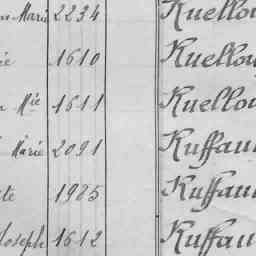 Marie 2234 Kuellou
ie 1610 Kuellou
Mie 1611 Kuellou
Marie 2091 Kuffau
te 1905 Kuffau
Joseph 1612 Kuffau